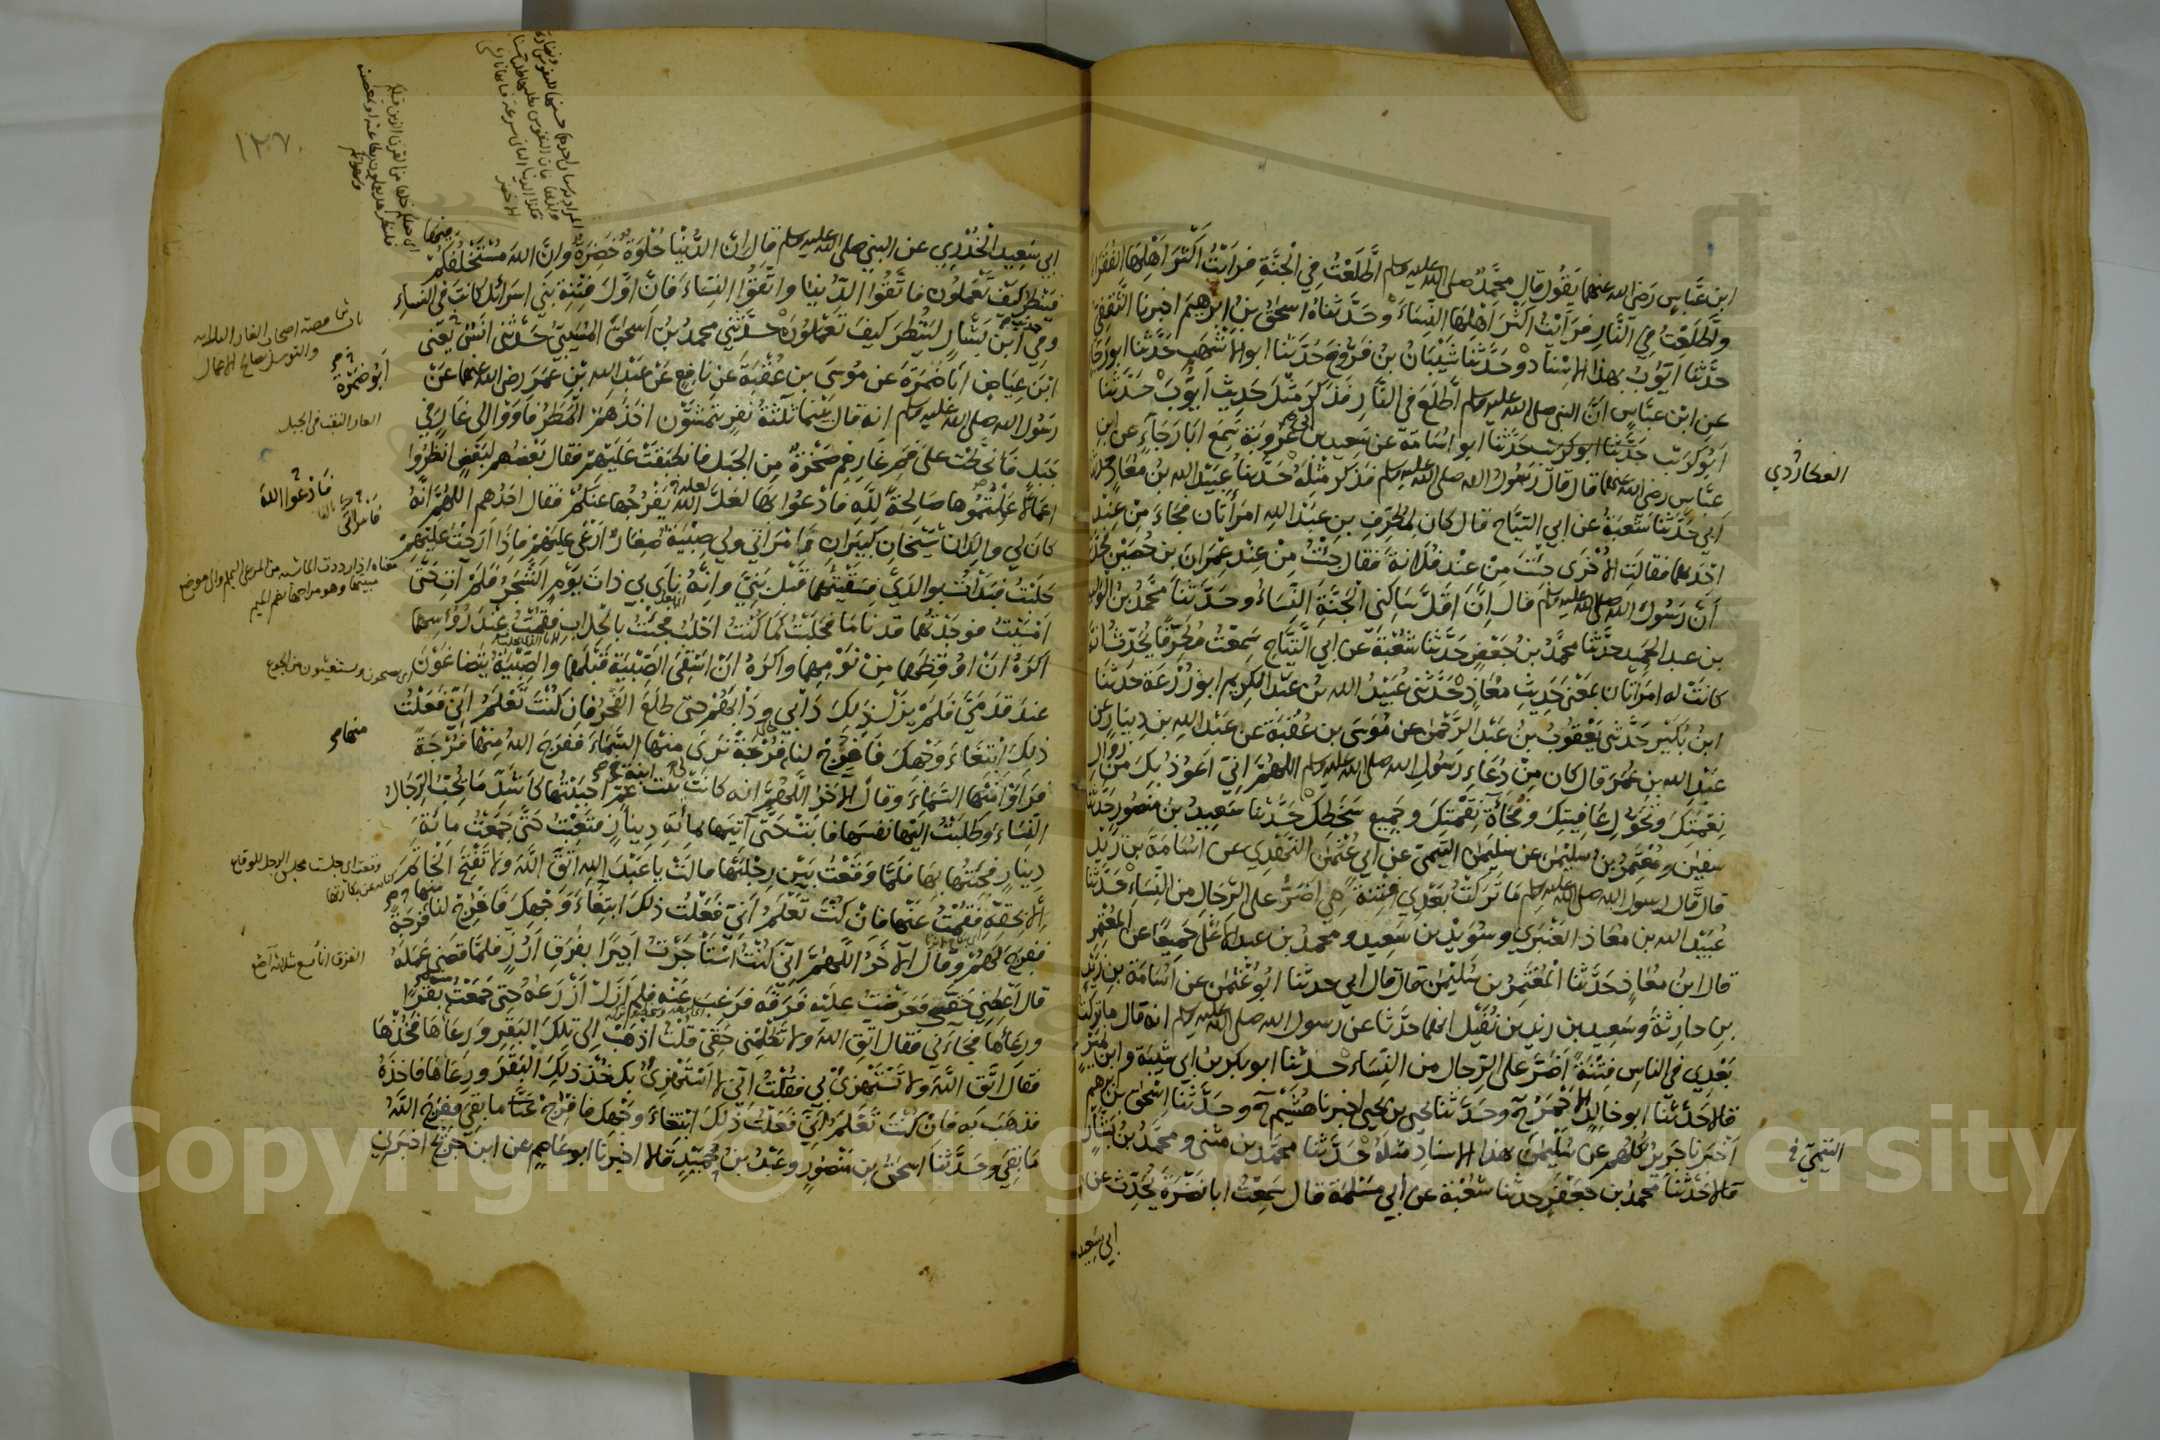 ابن عباس رضي الله عنهما يقول قال محمد صلى الله عليه وسلم اطلعت في الجنة فرايت اكثر اهلها الفقراء
واطلعت في النار فرايت اكثر اهلها النساء وحدثناه اسحق بن ابرهيم اخبرنا الثقفي
حدثنا ايوب بهذا الاسناد وحدثنا شيبان بن فروخ حدثنا ابو الاشهب حدثنا ابو رجاء
عن ابن عباس ان النبي صلى الله عليه وسلم اطلع في النار فذكر مثل حديث ايوب حدثنا
ابو كريب حدثنا ابو اسامة عن سعيد بن ابي عروبة سمع ابا رجاء عن ابن
عباس رضي الله عنهما قال قال رسول الله صلى الله عليه وسلم فذكر مثله حدثنا عبيد الله بن معاذ حدثنا
ابي حدثنا شعبة عن ابي التياح قال كان لمطرف بن عبد الله امراتان فجاء من عند
احديهما فقالت الاخرى جئت من عند فلانة فقال جئت من عند عمران بن حصين فحدثنا
ان رسول الله صلى الله عليه وسلم قال ان اقل ساكني الجنة النساء وحدثنا محمد بن الوليد
بن عبد الحميد حدثنا محمد بن جعفر حدثنا شعبة عن ابي التياح سمعت مطرفا يحدث انه
كانت له امراتان بمعنى حديث معاذ حدثني عبيد الله بن عبد الكريم ابو زرعة حدثنا
ابن بكير حدثني يعقوب بن عبد الرحمن عن موسى بن عقبة عن عبد الله بن دينار عن
عبد الله بن عمر قال كان من دعاء رسول الله صلى الله عليه وسلم اللهم اني اعوذ بك من زوال
نعمتك وتحول عافيتك وفجاة نقمتك وجميع سخطك حدثنا سعيد بن منصور حدثنا
سفين ومعتمر بن سليمن عن سليمن التيمي عن ابي عثمن النهدي عن اسامة بن زيد
قال قال رسول الله صلى الله عليه وسلم ما تركت بعدي فتنة هي اضر على الرجال من النساء حدثنا
عبيد الله بن معاذ العنبري وسويد بن سعيد ومحمد بن عبد الاعلى جميعا عن المعتمر
قال ابن معاذ حدثنا المعتمر بن سليمن قال قال ابي حدثنا ابو عثمن عن اسامة بن زيد
بن حارثة وسعيد بن زيد بن نفيل انهما حدثا عن رسول الله صلى الله عليه وسلم انه قال ما تركت
بعدي في الناس فتنة اضر على الرجال من النساء حدثنا ابو بكر بن ابي شيبة وابن نمير
قالا حدثنا ابو خالد الاحمر ح وحدثنا يحيى بن يحيى اخبرنا هشيم ح وحدثنا اسحق بن ابرهيم
اخبرنا جرير كلهم عن سليمن بهذا الاسناد مثله حدثنا محمد بن مثنى ومحمد بن بشار
قالا حدثنا محمد بن جعفر حدثنا شعبة عن ابي مسلمة قال سمعت ابا نضرة يحدث عن
ابي سعيد
التيمي
١٢٧
ابي سعيد الخدري عن النبي صلى الله عليه وسلم قال ان الدنيا حلوة خضرة وان الله مستخلفكم فيها
فينظر كيف تعملون فاتقوا الدنيا واتقوا النساء فان اول فتنة بني اسرائل كانت في النساء
وفي حديث ابن بشار لينظر كيف تعملون حدثني محمد بن اسحاق المسيبي حدثني انس يعني
ابن عياض ابا ضمرة عن موسى بن عقبة عن نافع عن عبد الله بن عمر رضي الله عنهما عن
رسول الله صلى الله عليه وسلم انه قال بينما ثلثة نفر يتمشون اخذهم المطر فاووا الى غار في
جبل فانحطت على فم غارهم صخرة من الجبل فانطبقت عليهم فقال بعضهم لبعض انظروا
اعمالا عملتموها صالحة لله فادعوا بها لعل الله يفرجها عنكم فقال احدهم اللهم انه
كان لي والدان شيخان كبيران وامراتي ولي صبية صغار ارعى عليهم فاذا ارحت عليهم
حلبت فبدات بوالدي فسقيتهما قبل بني وانه ناى بي ذات يوم الشجر فلم آت حتى
امسيت فوجدتهما قد ناما فحلبت كما كنت احلب فجئت بالحلاب فقمت عند رؤسهما
اكره ان اوقظهما من نومهما واكره ان اسقي الصبية قبلهما والصبية يتضاغون
عند قدمي فلم يزل ذلك دابي ودابهم حتى طلع الفجر فان كنت تعلم اني فعلت
ذلك ابتغاء وجهك فافرج لنا فرجة نرى منها السماء ففرج الله منها فرجة
فراوا منها السماء وقال الآخر اللهم انه كانت لي ابنة عم احببتها كاشد ما يحب الرجال
النساء وطلبت اليها نفسها فابت حتى آتيها بمائة دينار فتعبت حتى جمعت مائة
دينار فجئتها بها فلما وقعت بين رجليها قالت يا عبد الله اتق الله ولا تفتح الخاتم
الا بحقه فقمت عنها فان كنت تعلم اني فعلت ذلك ابتغاء وجهك فافرج لنا فرجة
ففرج لهم وقال الآخر اللهم اني كنت استاجرت اجيرا بفرق ارز فلما قضى عمله
قال اعطني حقي فعرضت عليه فرقه فرغب عنه فلم ازل ازرعه حتى جمعت منه بقرا
ورعاءها فجاءني فقال اتق الله ولا تظلمني حقي قلت اذهب الى تلك البقر ورعائها فخذها
فقال اتق الله ولا تستهزئ بي فقلت اني لا استهزئ بك خذ ذلك البقر ورعاءها فاخذه
فذهب به فان كنت تعلم اني فعلت ذلك ابتغاء وجهك فافرج عنا ما بقي ففرج الله
ما بقي وحدثنا اسحق بن منصور وعبد بن حميد قالا اخبرنا ابو عاصم عن ابن جريج اخبرني
باب قصة اصحاب الغار الثلاثة
والتوسل بصالح الاعمال
ابو ضمرة
الغار النقب في الجبل
فادعوا الله
منها
الفرق اناء يسع ثلاثة آصع
Copyright © King Saud University